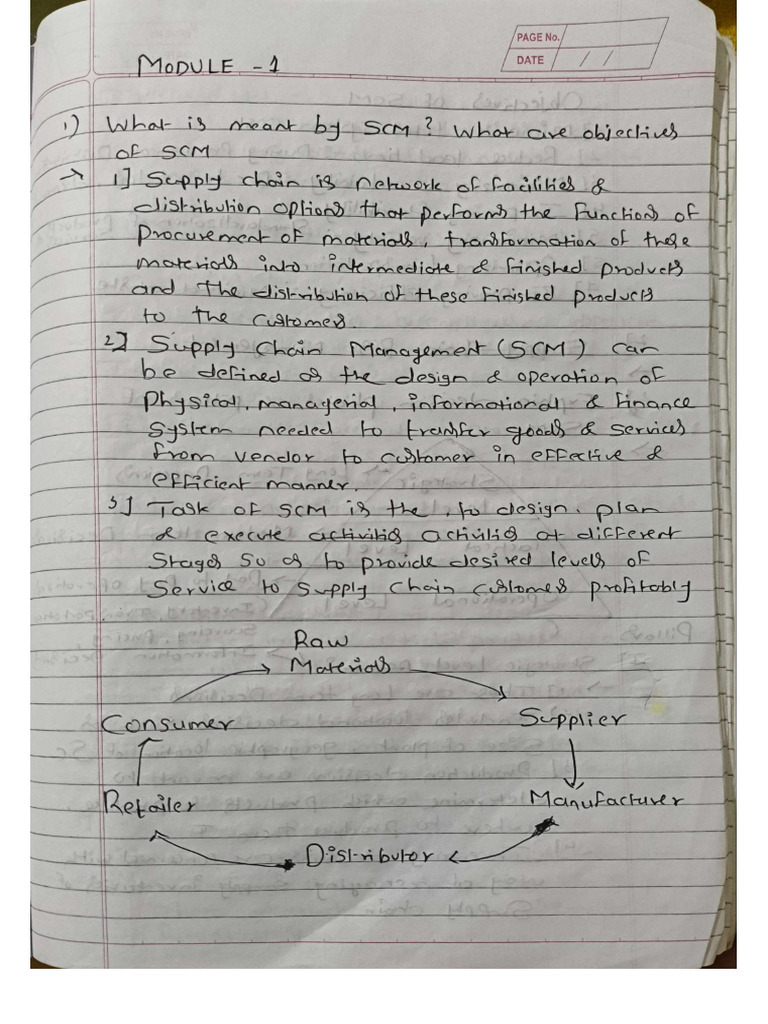 PAGE No.
DATE / /
MODULE - 1
1) What is meant by SCM? What are objectives
of SCM
→ 1] Supply chain is network of facilities &
distribution options that performs the functions of
procurement of materials, transformation of these
materials into intermediate & finished products
and the distribution of these finished products
to the customer.
2] Supply Chain Management (SCM) can
be defined as the design & operation of
Physical, managerial, informational & finance
system needed to transfer goods & services
from vendor to customer in effective &
efficient manner.
3] Task of SCM is the, to design, plan
& execute activities activities at different
Stages so as to provide desired levels of
Service to supply chain customer profitably
Raw
Materials
Consumer Supplier
Retailer Manufacturer
Distributor